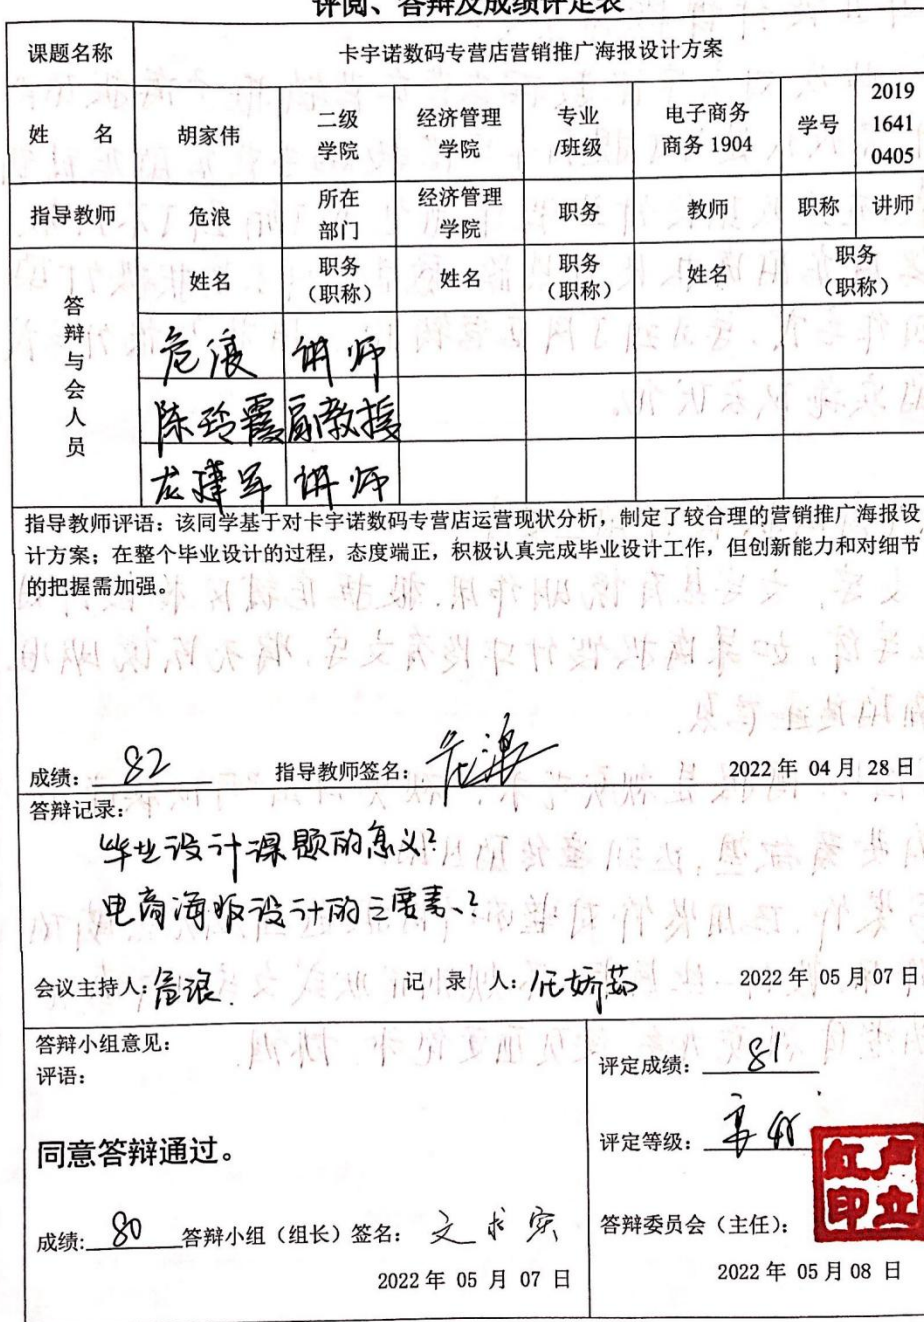 评阅、答辩及成绩评定表
课题名称 卡宇诺数码专营店营销推广海报设计方案
姓 名 胡家伟 二级学院 经济管理学院 专业/班级 电子商务商务 1904 学号 2019 1641 0405
指导教师 危浪 所在部门 经济管理学院 职务 教师 职称 讲师
答辩与会人员 姓名 职务（职称） 姓名 职务（职称） 姓名 职务（职称）
危浪 讲师
陈玲霞 副教授
龙建军 讲师
指导教师评语：该同学基于对卡宇诺数码专营店运营现状分析，制定了较合理的营销推广海报设
计方案；在整个毕业设计的过程，态度端正，积极认真完成毕业设计工作，但创新能力和对细节
的把握需加强。
成绩: 82 指导教师签名: 危浪 2022 年 04 月 28 日
答辩记录:
毕业设计课题的意义?
电商海报设计的三要素?
会议主持人: 危浪. 记 录 人: 任娇茹 2022 年 05 月 07 日
答辩小组意见:
评语:
同意答辩通过。
成绩: 80 答辩小组（组长）签名: 文求实
2022 年 05 月 07 日
评定成绩: 81
评定等级:
答辩委员会（主任）:
卢立红印
2022 年 05 月 08 日